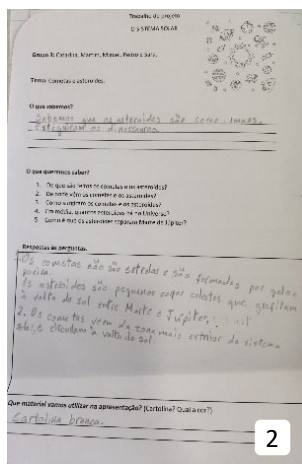 Trabalho de projeto
O SISTEMA SOLAR
Grupo 3: Catarina, Martim, Miguel, Pedro e Sara.
Tema: Cometas e asteroides.
O que sabemos?
Sabemos que os asteroides são como
Estinguiram os dinossauros.
O que queremos saber?
1. De que são feitos os cometas e os asteroides?
2. De onde vêm os cometas e os asteroides?
3. Como surgiram os cometas e os asteroides?
4. Em média, quantos asteroides há no Universo?
5. Como é que os asteroides separam Marte de Júpiter?
Respostas às perguntas.
Os cometas não são estrelas e são formados por gelo e
poeira.
Os asteroides são pequenos corpos celestes que gravitam
à volta do sol entre Marte e Júpiter,
2. Os cometas vêm da zona mais exterior do sistema
e circulam à volta do sol.
Que material vamos utilizar na apresentação? (Cartolina? Qual a cor?)
Cartolina branca.
2